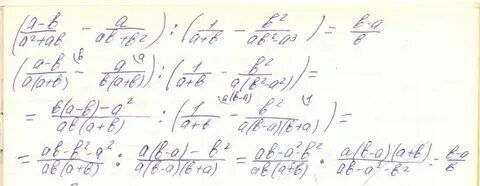 (a-b/a²+ab - a/ab+b²) : (1/a+b - b²/ab²-a³) = b-a/b
(a-b/a(a+b) ^b - a/b(a+b) ^a) : (1/a+b - b²/a(b²-a²)) =
= b(a-b)-a²/ab(a+b) : (1/a+b ^a(b-a) - b²/a(b-a)(b+a) ^1) =
= ab-b²-a²/ab(a+b) : a(b-a)-b²/a(b-a)(b+a) = ab-a²-b²/ab(a+b) · a(b-a)(a+b)/ab-a²-b² = b-a/b